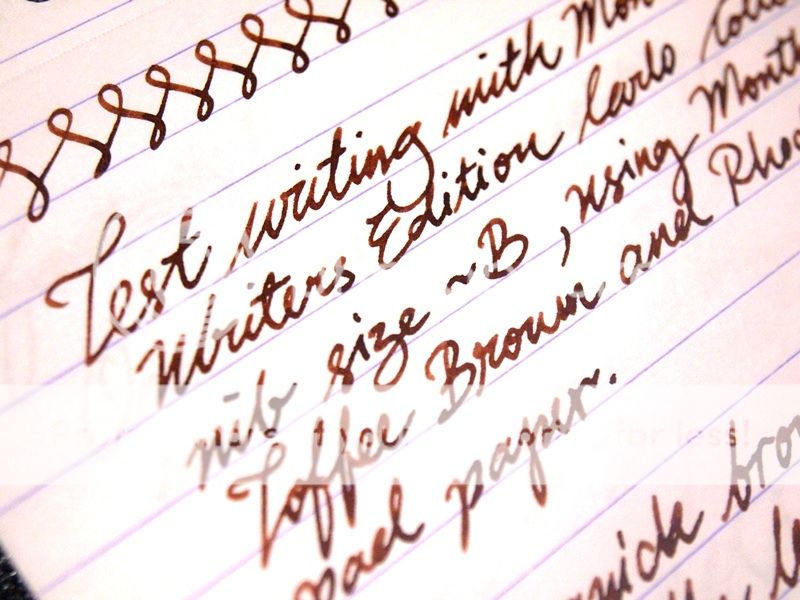 Test writing with Mon
Writers Edition Carlo Collo
nib size ~B, using Month
Toffee Brown and Rhod
pad paper.
quick brow
for less!